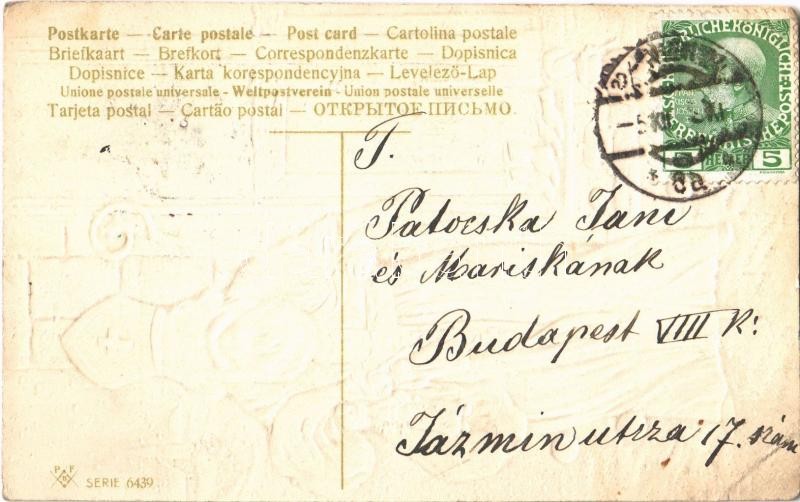 Postkarte — Carte postale — Post card — Cartolina postale
Briefkaart — Brefkort — Correspondenzkarte — Dopisnica
Dopisnice — Karta korespondencyjna — Levelező-Lap
Unione postale universale - Weltpostverein - Union postale universelle
Tarjeta postal — Cartão postal — ОТКРЫТОЕ ПИСЬМО.
5 HELLER 5
T.
Patocska Jani
és Mariskának
Budapest VIII k:
Jázmin utcza 17. szám
P F
B
SERIE 6439